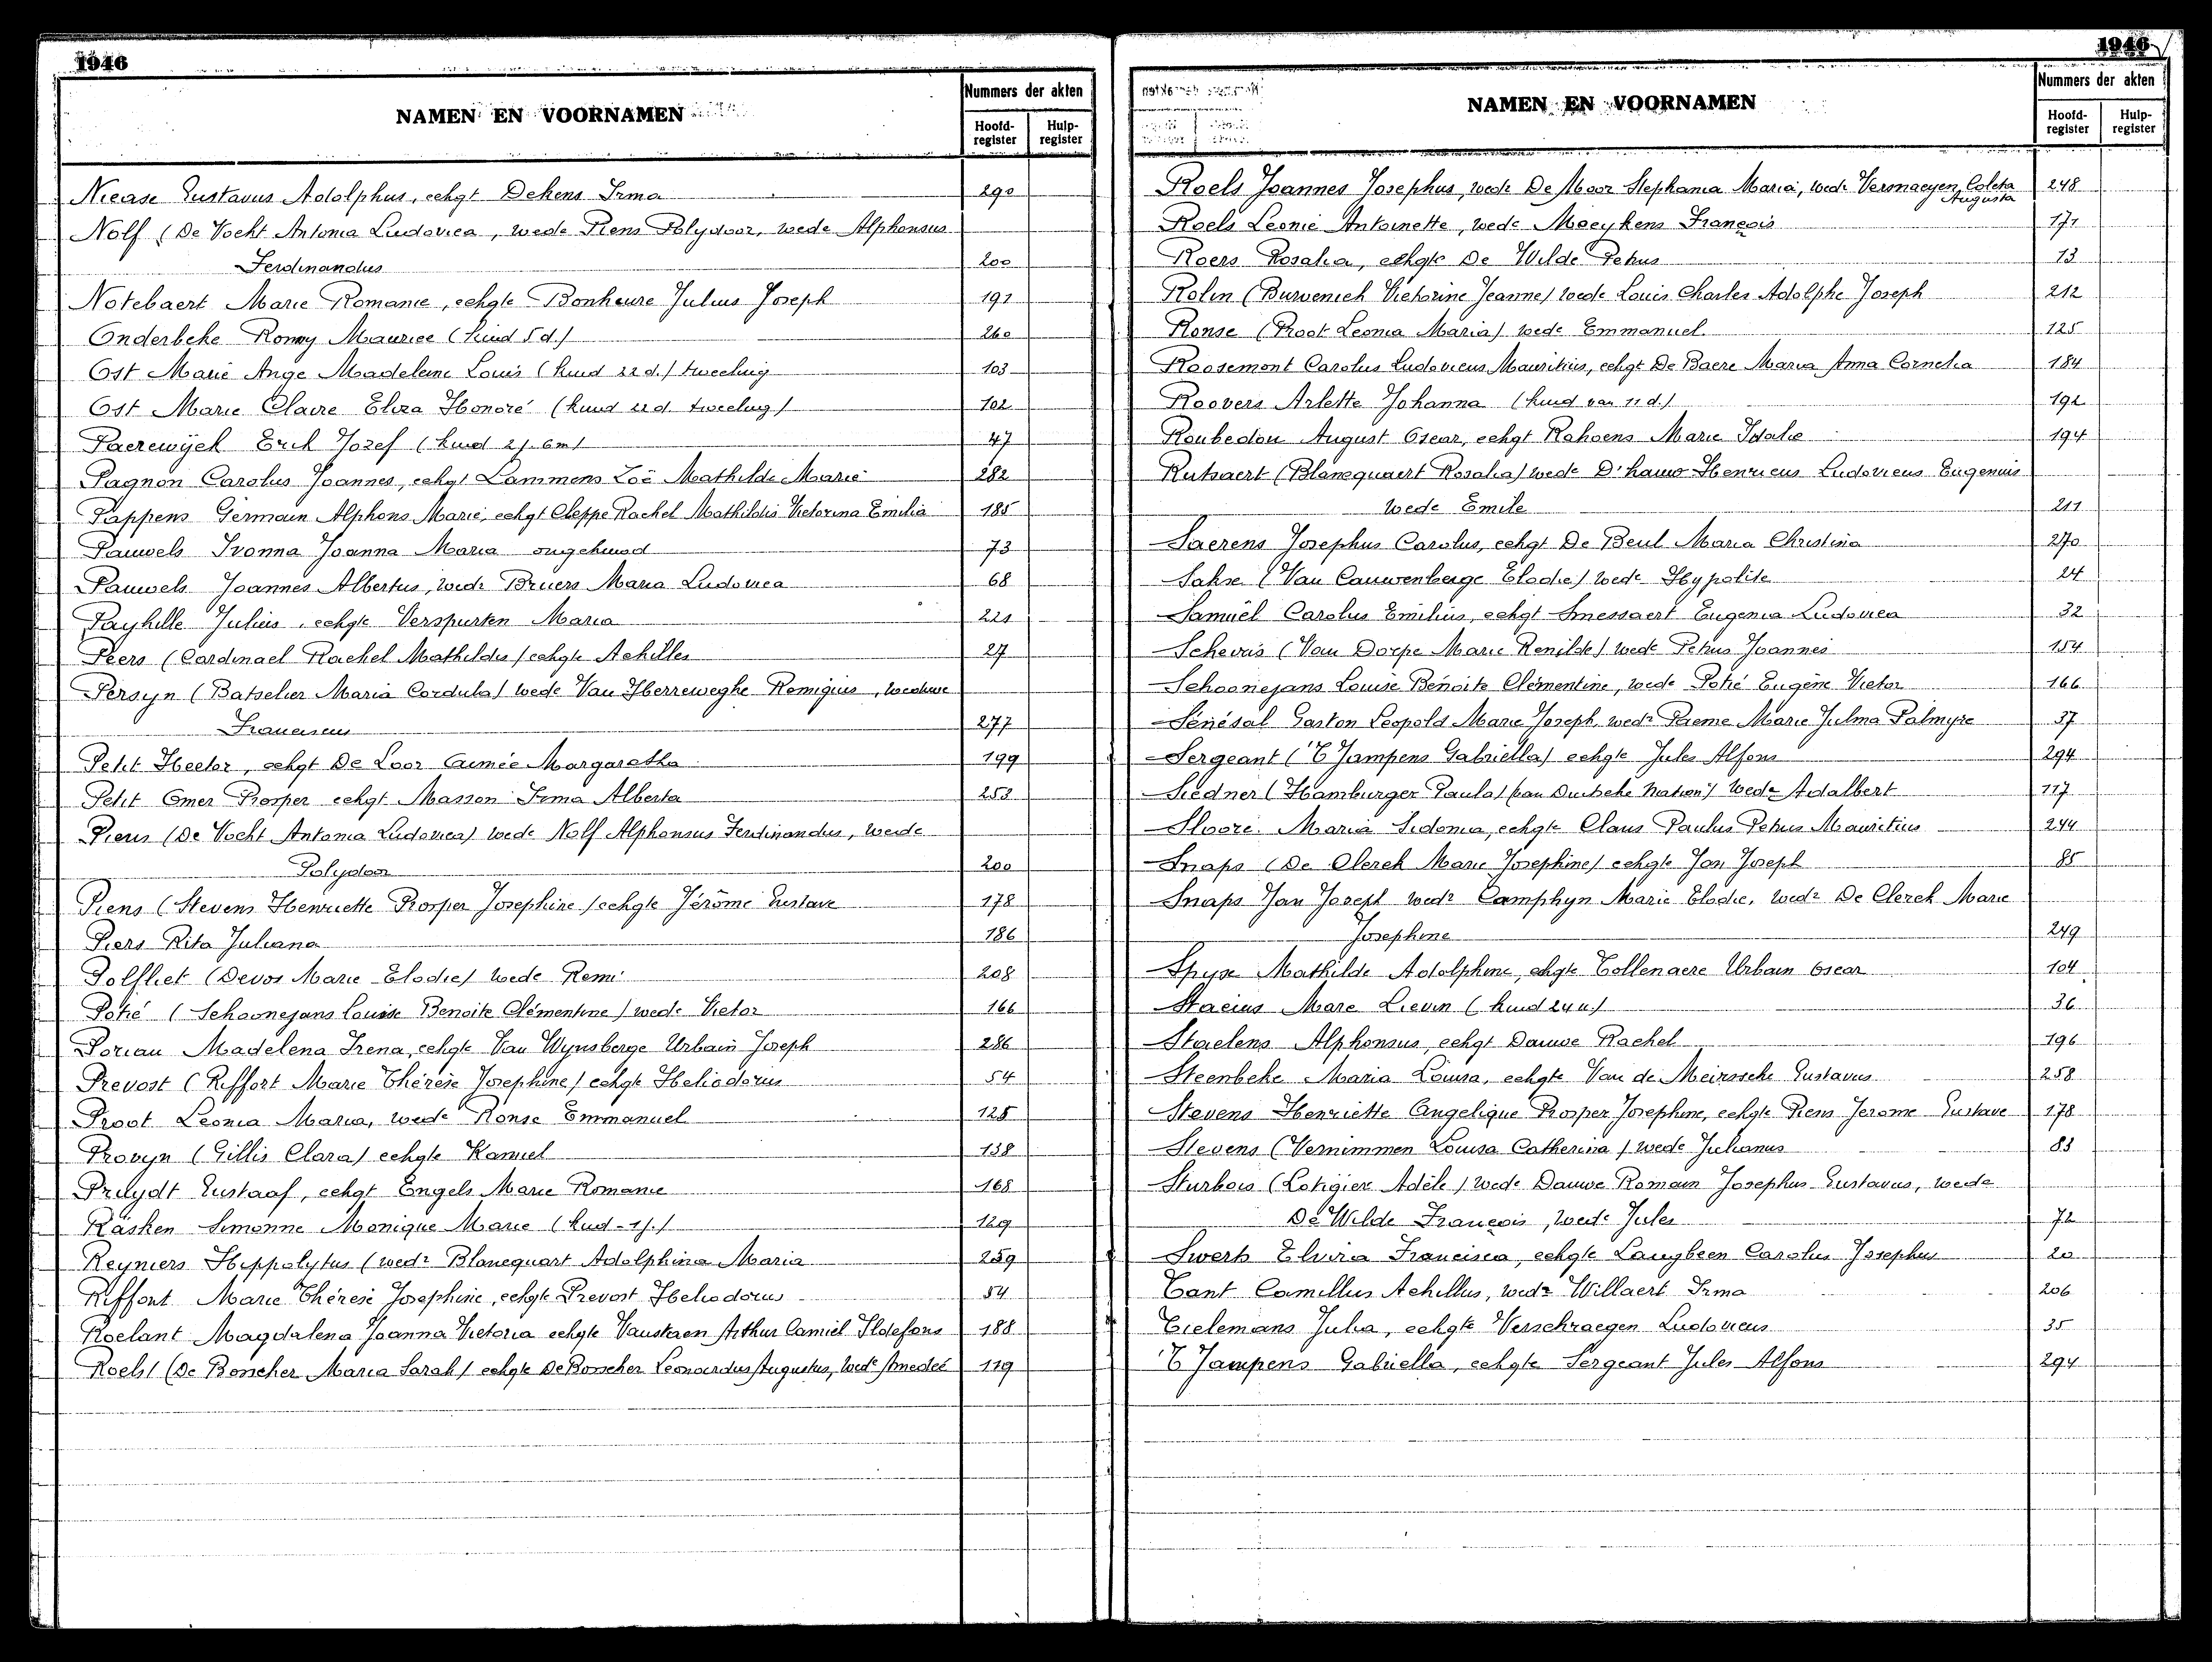 1946
NAMEN EN VOORNAMEN
Nummers der akten
Hoofd-register
Hulp-register
Niease Gustavus Adolphus, echgt Dekens Irma 290
Nolf (De Vocht Antonia Ludovica, wede Piens Polydoor, wede Alphonsus
Ferdinandus 200
Notebaert Marie Romanie, echgte Bonheure Julius Joseph 191
Onderbeke Ronny Maurice (kind 5 d.) 260
Ost Marie Ange Madeleine Louis (kind 22 d.) tweeling 103
Ost Marie Claire Eliza Honoré (kind 22 d. tweeling) 102
Paerewijck Erich Jozef (kind 2 j. 6 m) 47
Pagnon Carolus Joannes, echgt Lammens Zoë Mathilde Marie 282
Pappens Germain Alphons Marie, echgt Cleppe Rachel Mathildis Victorina Emilia 185
Pauwels Ivonna Joanna Maria ongehuwd 73
Pauwels Joannes Albertus, wedr Bruers Maria Ludovica 68
Payhille Julius, echgte Verspurten Maria 221
Peers (Cardinael Rachel Mathildis) echgte Achilles 27
Persyn (Batselier Maria Cordula) wede Van Herreweghe Remigius, weduwe
Franciscus 277
Petit Hector, echgt De Loor Aimée Margaretha 199
Petit Omer Prosper echgt Masson Irma Alberta 253
Piens (De Vocht Antonia Ludovica) wede Nolf Alphonsus Ferdinandus, wede
Polydoor 200
Piens (Stevens Henriette Prosper Josephine) echgte Jérôme Gustave 178
Piers Rita Juliana 186
Polfliet (Devos Marie Elodie) wede Remi 208
Potié (Schoonejans Louise Benoite Clémentine) wede Victor 166
Poriau Madelena Irena, echgte Van Wynsberge Urbain Joseph 286
Prevost (Riffort Marie Thérèse Josephine) echgte Heliodorus 54
Proot Leonia Maria, wede Ronse Emmanuel 125
Provyn (Gillis Clara) echgte Kamiel 138
Pruydt Gustaaf, echgt Engels Marie Romanie 168
Räsken Simonne Monique Marie (kind - 1 j.) 129
Reyniers Hippolytus (wedr Blancquart Adolphina Maria 259
Riffont Marie Thérèse Josephine, echgte Prevost Heliodorus 54
Roelant Magdalena Joanna Victoria echgte Vanstaen Arthur Camiel Ildefons 188
Roels (De Boncher Maria Sarah) echgte De Bosscher Leonardus Augustus, wede Amedeé 119
1946
NAMEN EN VOORNAMEN
Nummers der akten
Hoofd-register
Hulp-register
Roels Joannes Josephus, wedr De Moor Stephania Maria, wedr Vermaeyen Coleta
Augusta 248
Roels Leonie Antoinette, wede Moeykens François 171
Roers Rosalia, echgte De Wilde Petrus 13
Rolin (Burvenich Victorine Jeanne) wede Louis Charles Adolphe Joseph 212
Ronse (Proot Leonia Maria) wede Emmanuel 125
Roosemont Carolus Ludovicus Mauritius, echgt De Baere Maria Anna Cornelia 184
Roovers Arlette Johanna (kind van 11 d.) 192
Roubedou August Oscar, echgt Rahoens Marie Idalie 194
Rutsaert (Blancquaert Rosalia) wede D'hauw Henricus Ludovicus Eugenius
wede Emile 211
Saerens Josephus Carolus, echgt De Beul Maria Christina 270
Sahre (Van Cauwenberge Elodie) wede Hypolite 24
Samuël Carolus Emilius, echgt Smessaert Eugenia Ludovica 32
Scheväs (Van Dorpe Marie Renilde) wede Petrus Joannes 154
Schoonejans Louise Benoite Clémentine, wede Potié Eugène Victor 166
Sénésal Gaston Leopold Marie Joseph, wedr Paeme Marie Julma Palmyre 37
Sergeant ('T Jampens Gabriella) echgte Jules Alfons 294
Siedner (Hamburger Paula) (van Duitsche Nation.) Wede Adalbert 117
Sloore Maria Sidonia, echgte Claus Paulus Petrus Mauritius 244
Snaps (De Clerck Marie Josephine) echgte Jan Joseph 85
Snaps Jan Joseph wedr Camphyn Marie Elodie, wedr De Clerck Marie
Josephine 249
Spyse Mathilde Adolphine, echgte Tollenaere Urbain Oscar 104
Stacius Marc Lievin (kind 24 u.) 36
Staelens Alphonsus, echgt Dauwe Rachel 196
Steenbeke Maria Louisa, echgte Van de Meirssche Gustavus 258
Stevens Henriette Angelique Prosper Josephine, echgte Piens Jerome Gustave 178
Stevens (Vernimmen Louisa Catherina) wede Julianus 83
Sturbois (Lotigier Adèle) wede Dauwe Romain Josephus Gustavus, wede
De Wilde François, wede Jules 72
Swerts Elvira Francisca, echgte Langbeen Carolus Josephus 20
Tant Camillus Achillus, wedr Willaert Irma 206
Tielemans Julia, echgte Verschraegen Ludovicus 35
'T Jampens Gabriella, echgte Sergeant Jules Alfons 294